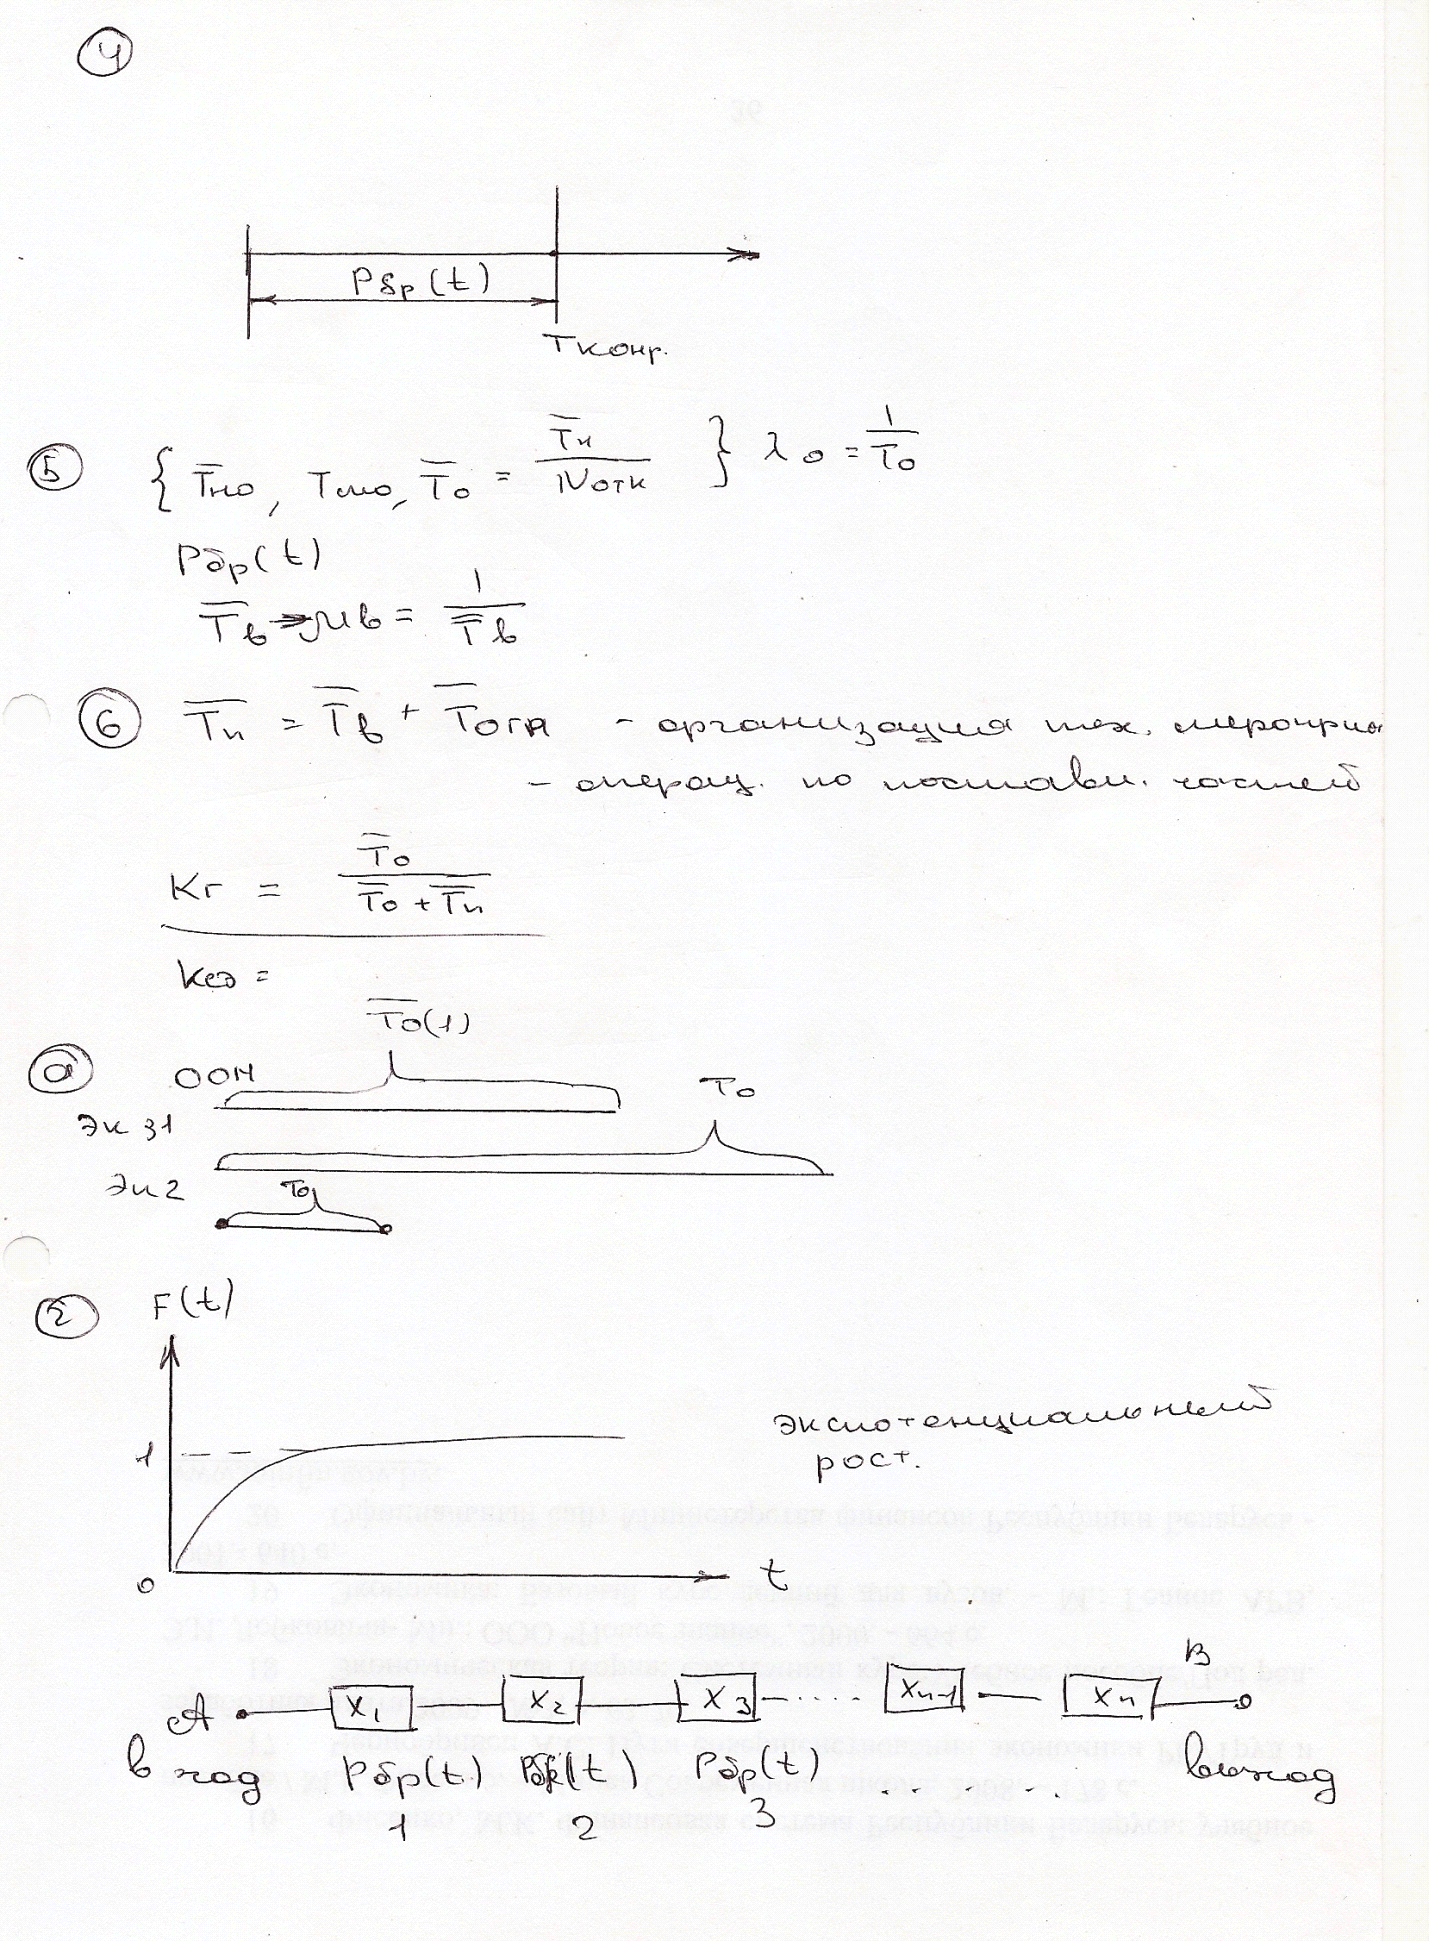 4
Pбр(t)
Tконр.
5 { T̅но, Tсмо, T̅о = T̅и / Nотк } λо = 1 / T̅о
Pбр(t)
T̅в → μв = 1 / T̅в
6 T̅п = T̅в + T̅огр - организация тех. мероприя
- операц. по поставкам. частей
Kг = T̅о / T̅о + T̅п
Kеэ =
T̅о(1)
а ООН
Tо
Эк з1
Эк 2
Tо
2 F(t)
экспотенциальный
рост.
1
0
t
A X1 X2 X3 ..... Xn-1 Xn B
вход Pбр(t) Pбр(t) Pбр(t) ... ... выход
1 2 3